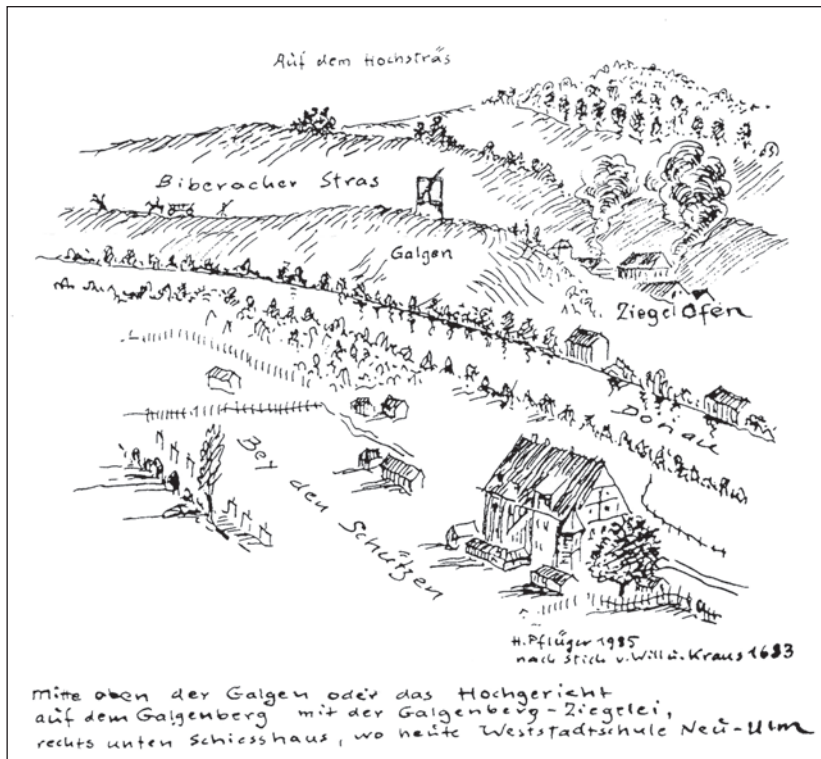 Auf dem Hochsträs
Biberacher Stras
Galgen
Ziegel Ofen
Donau
Bey den Schützen
H. Pflüger 1985
nach Stich v. Will u. Kraus 1683
Mitte oben der Galgen oder das Hochgericht
auf dem Galgenberg mit der Galgenberg-Ziegelei,
rechts unten Schiesshaus, wo heute Weststadtschule Neu-Ulm